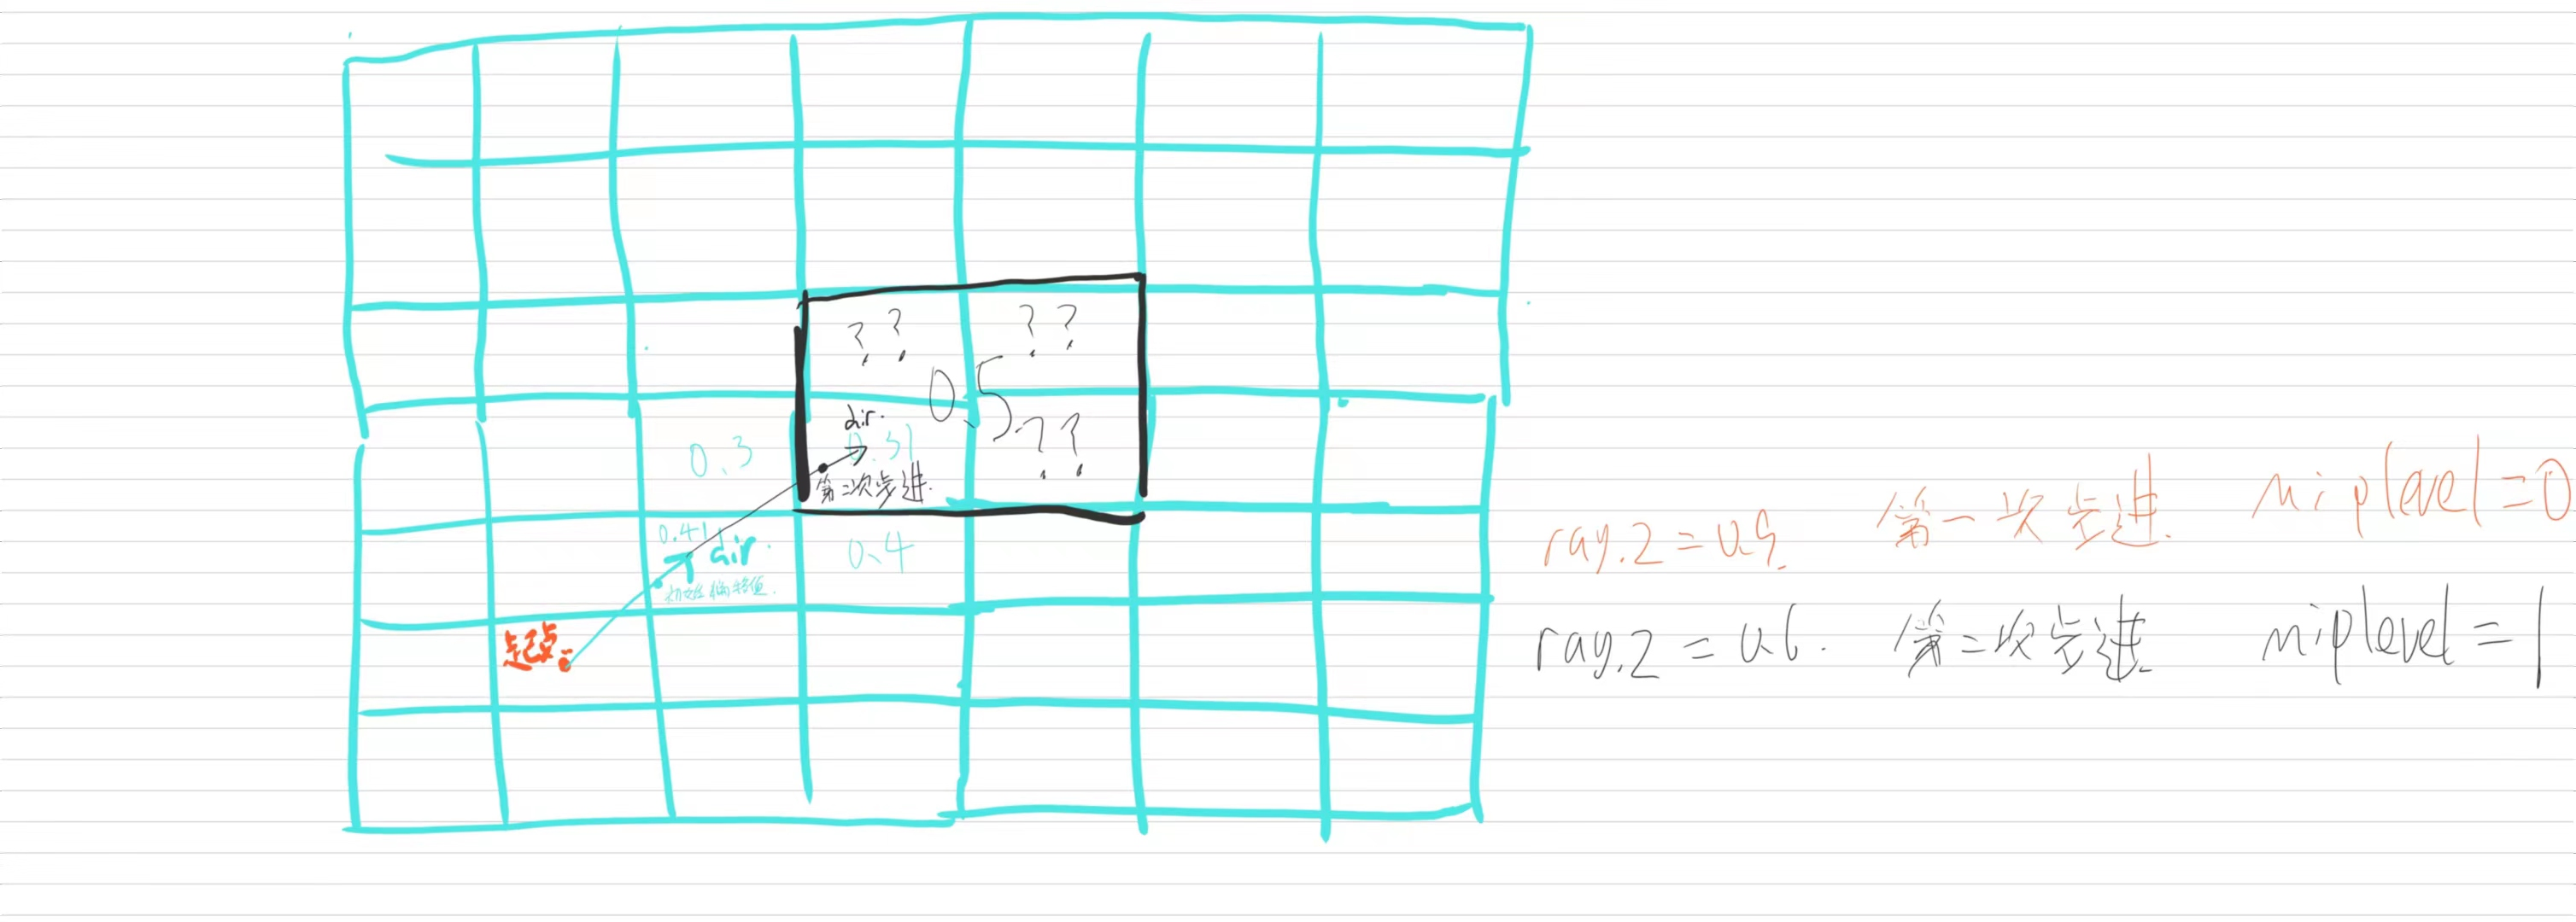 ?? ??
0.5
dir.
0.3 0.31 ??
第二次步进.
0.41 dir. 0.4
初始偏移值.
起点
ray.z=0.5. 第一次步进. miplevel=0
ray.z=0.6. 第二次步进 miplevel=1